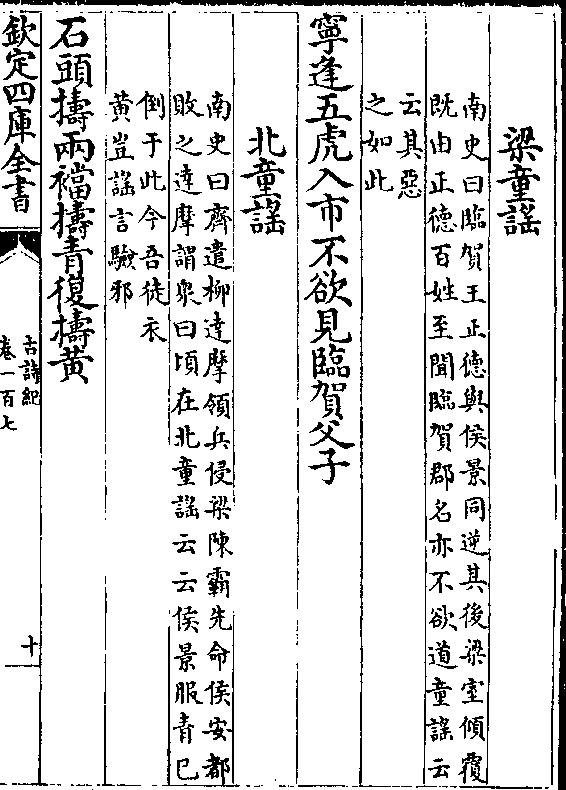 梁童謡
南史曰臨賀王正德與侯景同逆其後梁室傾覆
既由正德百姓至聞臨賀郡名亦不欲道童謡云
云其惡
之如此
寧逢五虎入市不欲見臨賀父子
北童謡
南史曰齊遣柳達摩領兵侵梁陳霸先命侯安都
敗之達摩謂衆曰頃在北童謡云云侯景服青已
倒于此今吾徒衣
黄豈謡言驗邪
石頭擣兩襠擣青復擣黄
欽定四庫全書
古詩紀
卷一百七
十